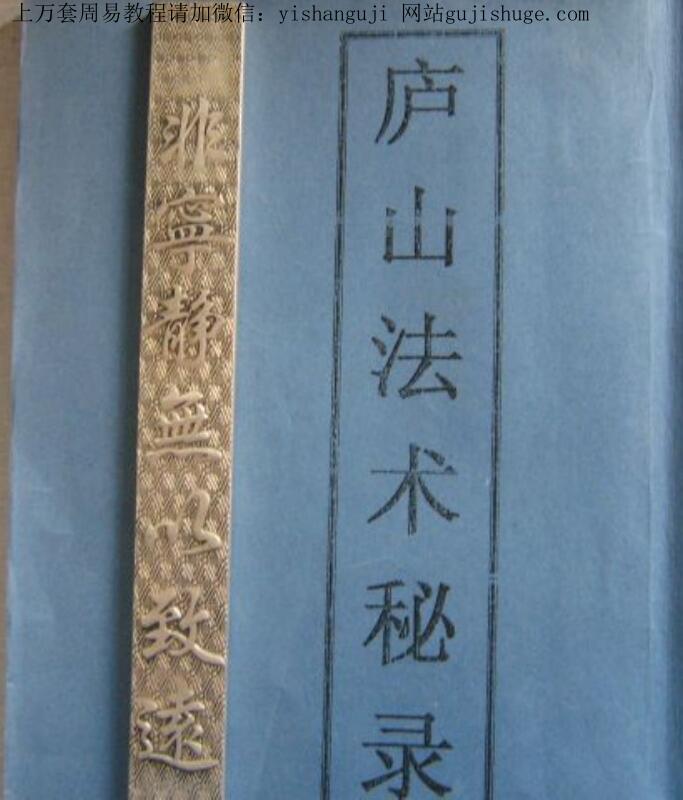 上万套周易教程请加微信：yishanguji 网站gujishuge.com
庐山法术秘录
非寧靜無以致遠